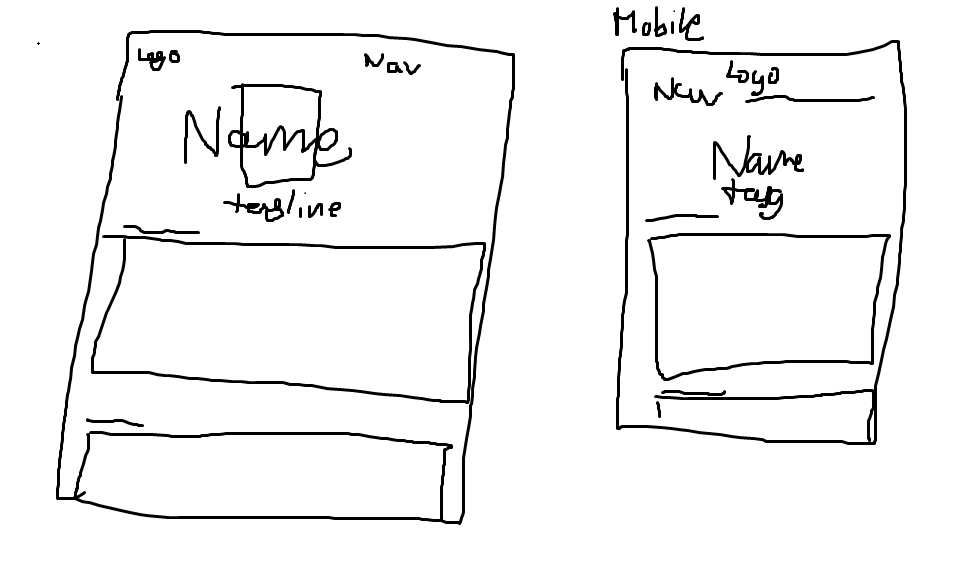 Logo
Nav
Name
tagline
Mobile
Logo
Nav
Name
tag